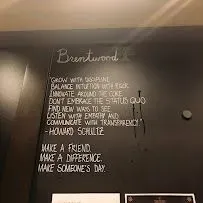 Brentwood
"GROW WITH DISCIPLINE.
BALANCE INTUITION WITH RIGOR.
INNOVATE AROUND THE CORE.
DON'T EMBRACE THE STATUS QUO.
FIND NEW WAYS TO SEE.
LISTEN WITH EMPATHY AND
COMMUNICATE WITH TRANSPARENCY."
- HOWARD SCHULTZ
MAKE A FRIEND.
MAKE A DIFFERENCE.
MAKE SOMEONE'S DAY.